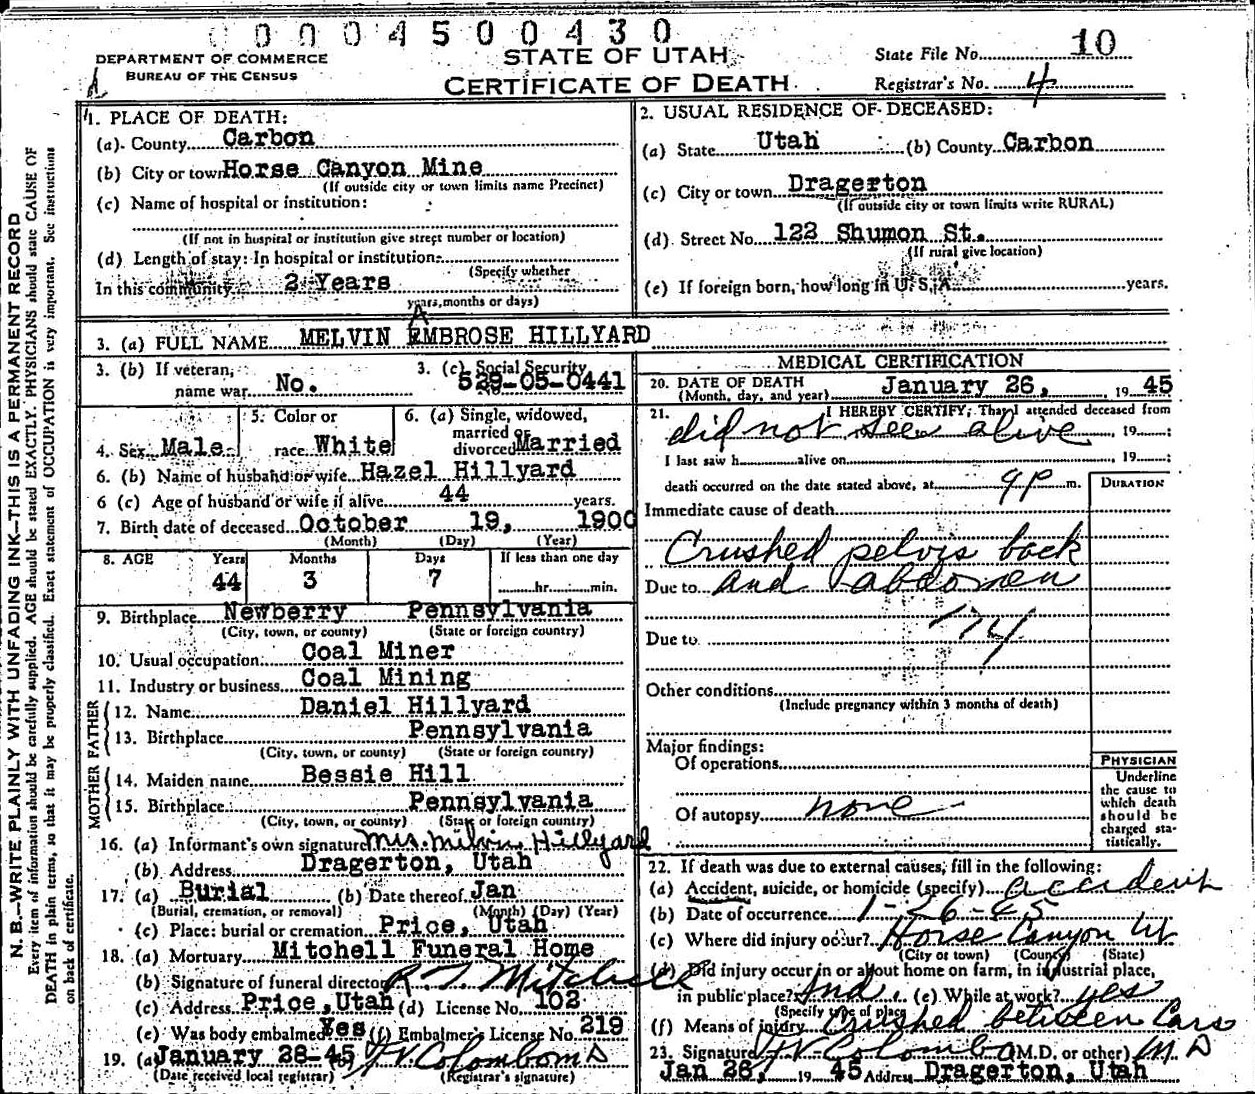 0004500430
DEPARTMENT OF COMMERCE
BUREAU OF THE CENSUS
STATE OF UTAH
CERTIFICATE OF DEATH
State File No. 10
Registrar's No. 4
1. PLACE OF DEATH:
(a) County Carbon
(b) City or town Horse Canyon Mine
(If outside city or town limits name Precinct)
(c) Name of hospital or institution:
(If not in hospital or institution give street number or location)
(d) Length of stay: In hospital or institution
(Specify whether
In this community 2 Years
years, months or days)
2. USUAL RESIDENCE OF DECEASED:
(a) State Utah (b) County Carbon
(c) City or town Dragerton
(If outside city or town limits write RURAL)
(d) Street No. 122 Shumon St.
(If rural give location)
(e) If foreign born, how long in U. S. A. years.
A
3. (a) FULL NAME MELVIN EMBROSE HILLYARD
3. (b) If veteran, name war No.
3. (c) Social Security
529-05-0441
4. Sex Male
5. Color or race White
6. (a) Single, widowed, married or divorced Married
6. (b) Name of husband or wife Hazel Hillyard
6 (c) Age of husband or wife if alive 44 years.
7. Birth date of deceased October 19, 1900
(Month) (Day) (Year)
8. AGE Years Months Days If less than one day
44 3 7 hr. min.
9. Birthplace Newberry Pennsylvania
(City, town, or county) (State or foreign country)
10. Usual occupation Coal Miner
11. Industry or business Coal Mining
FATHER
12. Name Daniel Hillyard
13. Birthplace Pennsylvania
(City, town, or county) (State or foreign country)
MOTHER
14. Maiden name Bessie Hill
15. Birthplace Pennsylvania
(City, town, or county) (State or foreign country)
16. (a) Informant's own signature Mrs. Melvin Hillyard
(b) Address Dragerton, Utah
17. (a) Burial (b) Date thereof Jan
(Burial, cremation, or removal) (Month) (Day) (Year)
(c) Place: burial or cremation Price, Utah
18. (a) Mortuary Mitchell Funeral Home
(b) Signature of funeral director R T Mitchell
(c) Address Price, Utah (d) License No. 102
(e) Was body embalmed Yes (f) Embalmer's License No. 219
19. (a) January 28-45 (b) F V Colombo M D
(Date received local registrar) (Registrar's signature)
MEDICAL CERTIFICATION
20. DATE OF DEATH January 26, 1945
(Month, day, and year)
21. I HEREBY CERTIFY, That I attended deceased from
did not see alive, 19 ;
I last saw h alive on , 19 ;
death occurred on the date stated above, at 9 P m.
DURATION
Immediate cause of death
Crushed pelvis back
Due to and abdomen
174
Due to
Other conditions
(Include pregnancy within 3 months of death)
Major findings:
Of operations
Of autopsy none
PHYSICIAN
Underline
the cause to
which death
should be
charged sta-
tistically.
22. If death was due to external causes, fill in the following:
(a) Accident, suicide, or homicide (specify) accident
(b) Date of occurrence 1-26-45
(c) Where did injury occur? Horse Canyon Ut
(City or town) (County) (State)
(d) Did injury occur in or about home on farm, in industrial place,
in public place? Ind. (e) While at work? yes
(Specify type of place)
(f) Means of injury crushed between Cars
23. Signature F V Colombo (M.D. or other) M D
Jan 26, 1945 Address Dragerton, Utah
N. B.—WRITE PLAINLY WITH UNFADING INK—THIS IS A PERMANENT RECORD
Every item of information should be carefully supplied. AGE should be stated EXACTLY. PHYSICIANS should state CAUSE OF
DEATH in plain terms, so that it may be properly classified. Exact statement of OCCUPATION is very important. See instructions
on back of certificate.